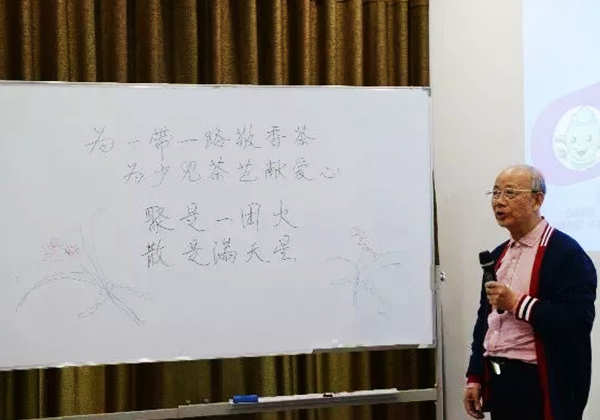 为一带一路敬香茶
为少儿茶艺献爱心
聚是一团火
散是满天星